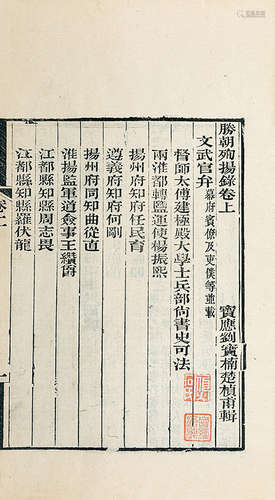 勝朝殉揚錄卷上
寶應劉寶楠楚楨甫輯
文武官弁 幕府賓僚及吏僕等並載
督師太傅建極殿大學士兵部尚書史可法
兩淮都轉鹽運使楊振熙
揚州府知府任民育
遵義府知府何剛
揚州府同知曲從直
淮揚監軍道僉事王纘爵
江都縣知縣周志畏
江都縣知縣羅伏龍
卷上
一